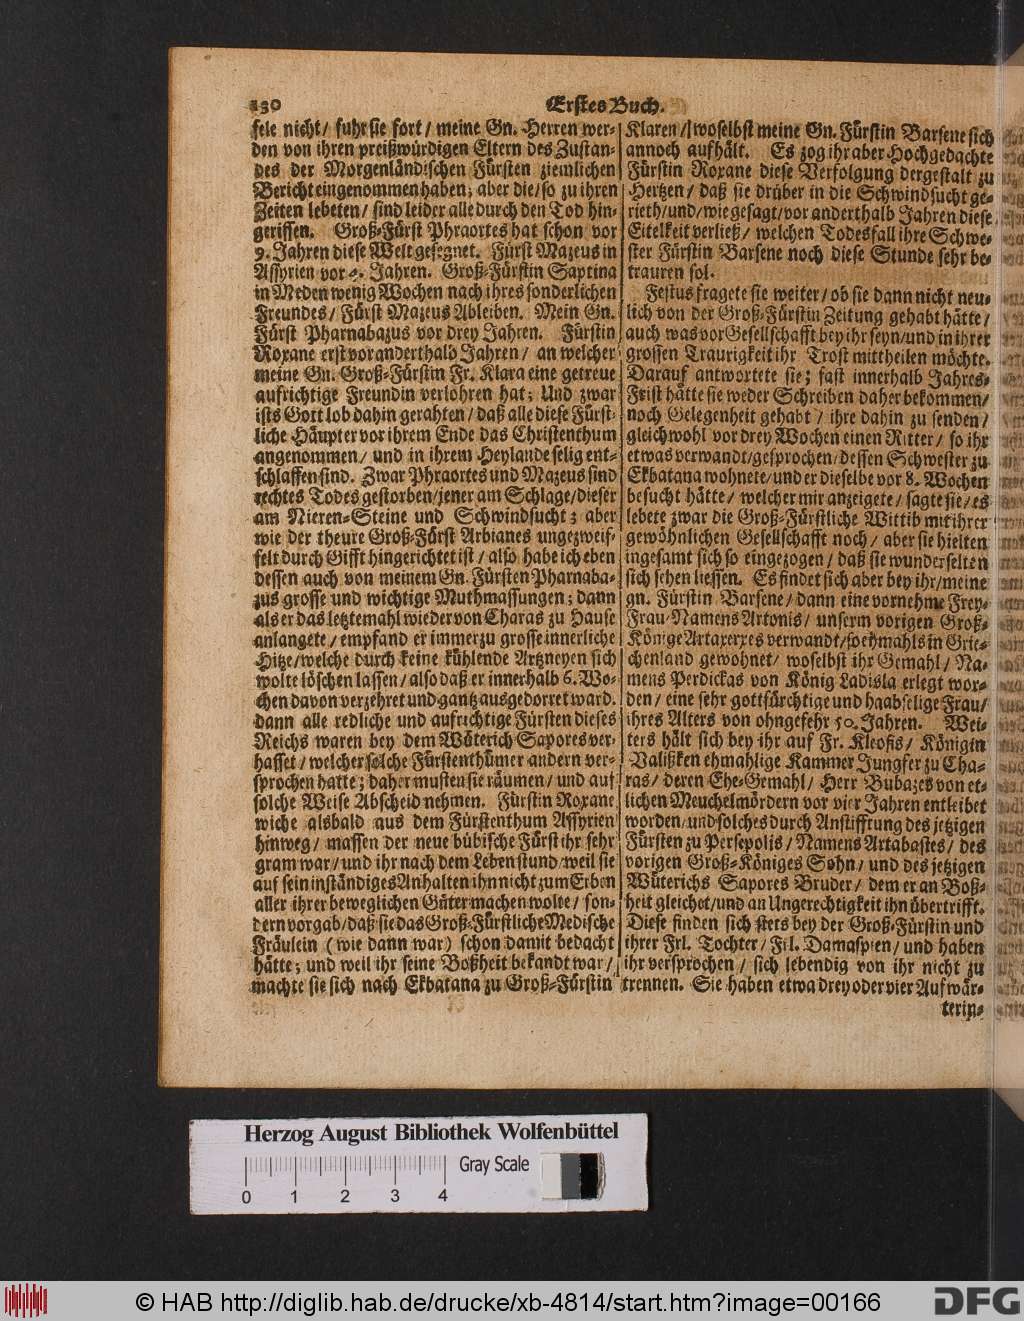 130
Erstes Buch.
fele nicht/ fuhr sie fort/ meine Gn. Herren wer-
den von ihren preißwürdigen Eltern des Zustan-
des der Morgenländischen Fürsten ziemlichen
Bericht eingenommen haben; aber die/ so zu ihren
Zeiten lebeten/ sind leider alle durch den Tod hin-
gerissen. Groß-Fürst Phraortes hat schon vor
9. Jahren diese Welt gesegnet. Fürst Mazeus in
Assyrien vor Jahren. Groß-Fürstin Saptina
in Meden wenig Wochen nach ihres sonderlichen
Freundes/ Fürst Mazeus Ableiben. Mein Gn.
Fürst Pharnabazus vor drey Jahren. Fürstin
Roxane erst vor anderthalb Jahren/ an welcher
meine Gn. Groß-Fürstin Fr. Klara eine getreue
aufrichtige Freundin verlohren hat; Und zwar
ists Gott lob dahin gerahten/ daß alle diese Fürst-
liche Häupter vor ihrem Ende das Christenthum
angenommen/ und in ihrem Heylande selig ent-
schlaffen sind. Zwar Phraortes und Mazeus sind
rechtes Todes gestorben/ jener am Schlage/ dieser
am Nieren-Steine und Schwindsucht; aber
wie der theure Groß-Fürst Arbianes ungezweif-
felt durch Gifft hingerichtet ist/ also habe ich eben
dessen auch von meinem Gn. Fürsten Pharnaba-
zus grosse und wichtige Muthmassungen; dann
als er das letztemahl wieder von Charas zu Hause
anlangete/ empfand er immerzu grosse innerliche
Hitze/ welche durch keine kühlende Artzneyen sich
wolte löschen lassen/ also daß er innerhalb 6. Wo-
chen davon verzehret und gantz ausgedorret ward.
dann alle redliche und aufrichtige Fürsten dieses
Reichs waren bey dem Wüterich Sapores ver-
hasset/ welcher solche Fürstenthümer andern ver-
sprochen hatte; daher musten sie räumen/ und auf
solche Weise Abscheid nehmen. Fürstin Roxane
wiche alsbald aus dem Fürstenthum Assyrien
hinweg/ massen der neue bübische Fürst ihr sehr
gram war/ und ihr nach dem Leben stund/ weil sie
auf sein inständiges Anhalten ihn nicht zum Erben
aller ihrer beweglichen Güter machen wolte/ son-
dern vorgab/ daß sie das Groß-Fürstliche Medische
Fräulein (wie dann war) schon damit bedacht
hätte; und weil ihr seine Boßheit bekandt war/
machte sie sich nach Ekbatana zu Groß-Fürstin
Klaren/ woselbst meine Gn. Fürstin Barsene sich
annoch aufhält. Es zog ihr aber Hochgedachte
Fürstin Roxane diese Verfolgung dergestalt zu
Hertzen/ daß sie drüber in die Schwindsucht ge-
rieth/ und/ wie gesagt/ vor anderthalb Jahren diese
Eitelkeit verließ/ welchen Todesfall ihre Schwe-
ster Fürstin Barsene noch diese Stunde sehr be-
trauren sol.
Festus fragete sie weiter/ ob sie dann nicht neu-
lich von der Groß-Fürstin Zeitung gehabt hätte/
auch was vor Gesellschafft bey ihr seyn/ und in ihrer
grossen Traurigkeit ihr Trost mittheilen möchte.
Darauf antwortete sie; fast innerhalb Jahres-
Frist hätte sie weder Schreiben daher bekommen/
noch Gelegenheit gehabt/ ihre dahin zu senden/
gleichwohl vor drey Wochen einen Ritter/ so ihr
etwas verwandt/ gesprochen/ dessen Schwester zu
Ekbatana wohnete/ und er dieselbe vor 8. Wochen
besucht hätte/ welcher mir anzeigete/ sagte sie/ es
lebete zwar die Groß-Fürstliche Wittib mit ihrer
gewöhnlichen Gesellschafft noch/ aber sie hielten
ingesamt sich so eingezogen/ daß sie wunderselten
sich sehen liessen. Es findet sich aber bey ihr/ meine
gn. Fürstin Barsene/ dann eine vornehme Frey-
Frau/ Namens Artonis/ unserm vorigen Groß-
Könige Artaxerxes verwandt/ so ehmahls in Grie-
chenland gewohnet/ woselbst ihr Gemahl/ Na-
mens Perdickas von König Ladisla erlegt wor-
den/ eine sehr gottfürchtige und haabselige Frau/
ihres Alters von ohngefehr 50. Jahren. Wei-
ters hält sich bey ihr auf Fr. Kleofis/ Königin
Valißken ehmahlige Kammer Jungfer zu Cha-
ras/ deren Ehe-Gemahl/ Herr Bubazes von et-
lichen Meuchelmördern vor vier Jahren entleibet
worden/ und solches durch Anstifftung des jetzigen
Fürsten zu Persepolis/ Namens Artabastes/ des
vorigen Groß-Königes Sohn/ und des jetzigen
Wüterichs Sapores Bruder/ dem er an Boß-
heit gleichet/ und an Ungerechtigkeit ihn übertrifft.
Diese finden sich stets bey der Groß-Fürstin und
ihrer Frl. Tochter/ Frl. Damaspien/ und haben
ihr versprochen/ sich lebendig von ihr nicht zu
trennen. Sie haben etwa drey oder vier Aufwär-
terin-
Herzog August Bibliothek Wolfenbüttel
Gray Scale
0 1 2 3 4
© HAB http://diglib.hab.de/drucke/xb-4814/start.htm?image=00166
DFG